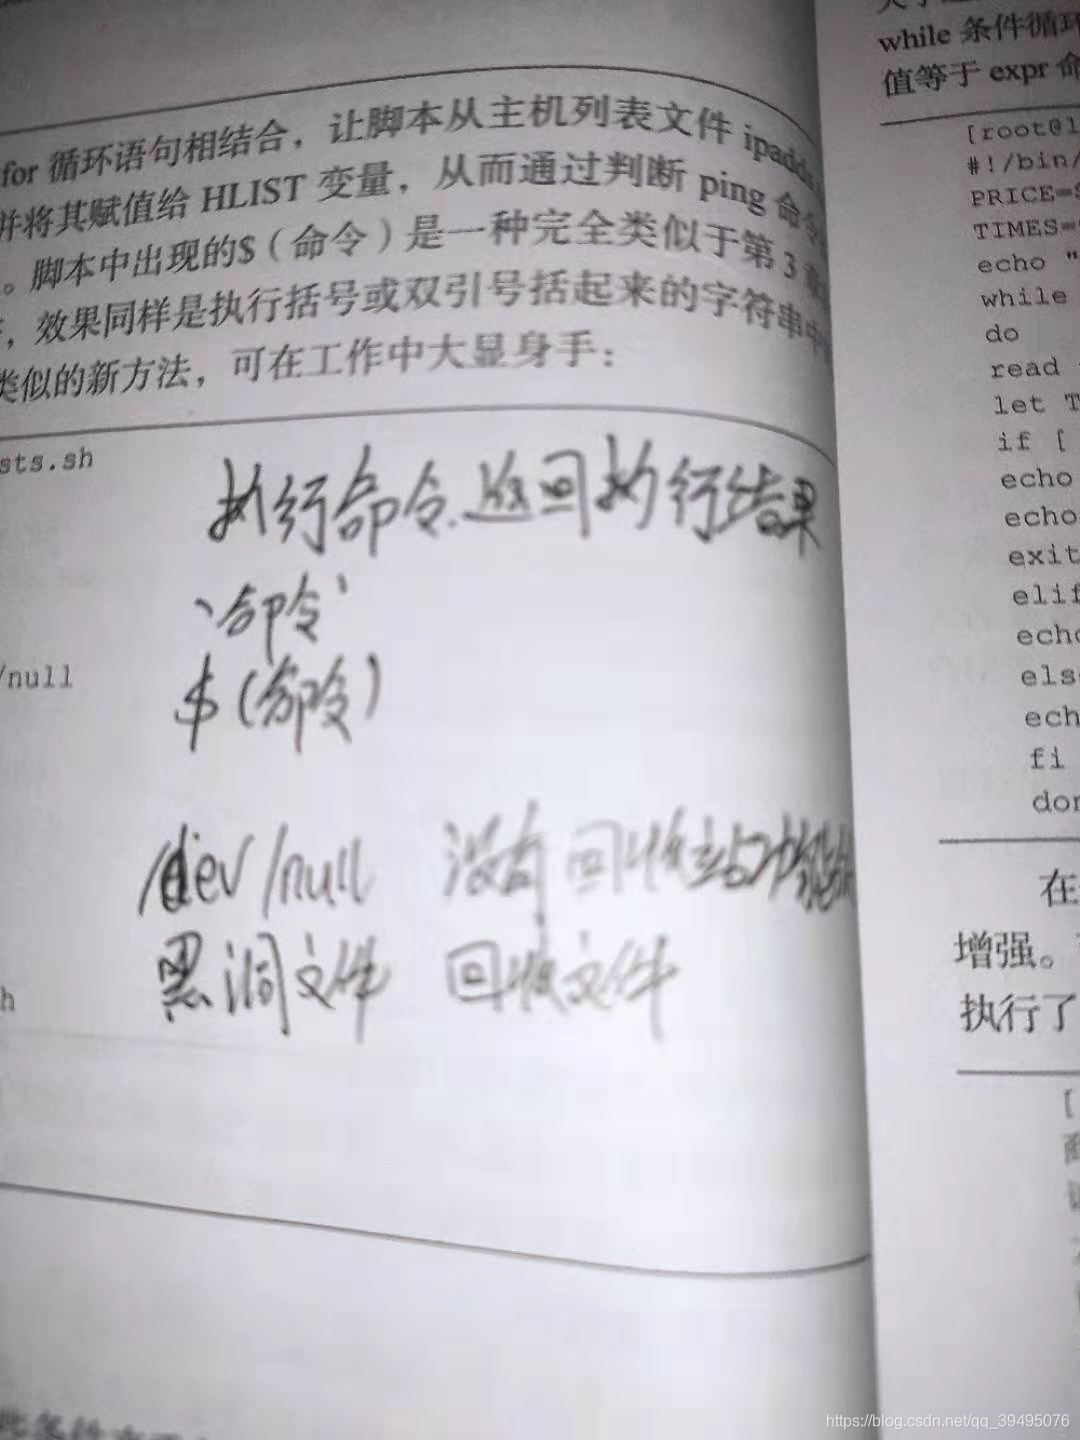 for 循环语句相结合，让脚本从主机列表文件 ipadds
并将其赋值给 HLIST 变量，从而通过判断 ping 命令
。脚本中出现的$（命令）是一种完全类似于第 3 章
，效果同样是执行括号或双引号括起来的字符串中
类似的新方法，可在工作中大显身手：
sts.sh
执行命令.返回执行结果
`命令`
$(命令)
/null
/dev/null 没有回收站功能
黑洞文件 回收文件
h
while 条件循环
值等于 expr 命
[root@l
#!/bin/
PRICE=$
TIMES=
echo "
while
do
read
let T
if [
echo
echo
exit
elif
echo
els
ech
fi
don
在
增强。
执行了
[
https://blog.csdn.net/qq_39495076